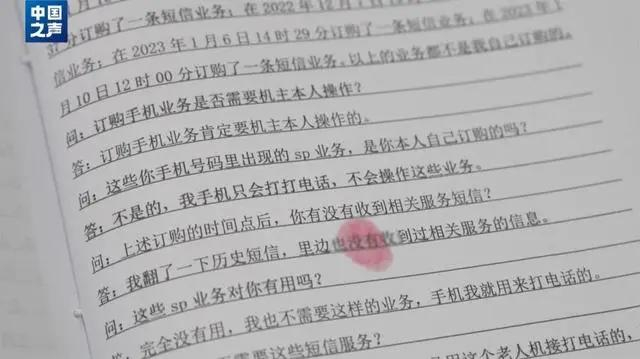 中国之声
分订购了一条短信业务；在 2022 年 12 月
信业务；在 2023 年 1 月 6 日 14 时 29 分订购了一条短信业务；在 2023 年 1
月 10 日 12 时 00 分订购了一条短信业务。以上的业务都不是我自己订购的。
问：订购手机业务是否需要机主本人操作？
答：订购手机业务肯定要机主本人操作的。
问：这些你手机号码里出现的 sp 业务，是你本人自己订购的吗？
答：不是的，我手机只会打打电话，不会操作这些业务。
问：上述订购的时间点后，你有没有收到相关服务短信？
答：我翻了一下历史短信，里边也没有收到过相关服务的信息。
问：这些 sp 业务对你有用吗？
答：完全没有用，我也不需要这样的业务，手机我就用来打电话的。
需要这些短信服务？
用这个老人机接打电话的，